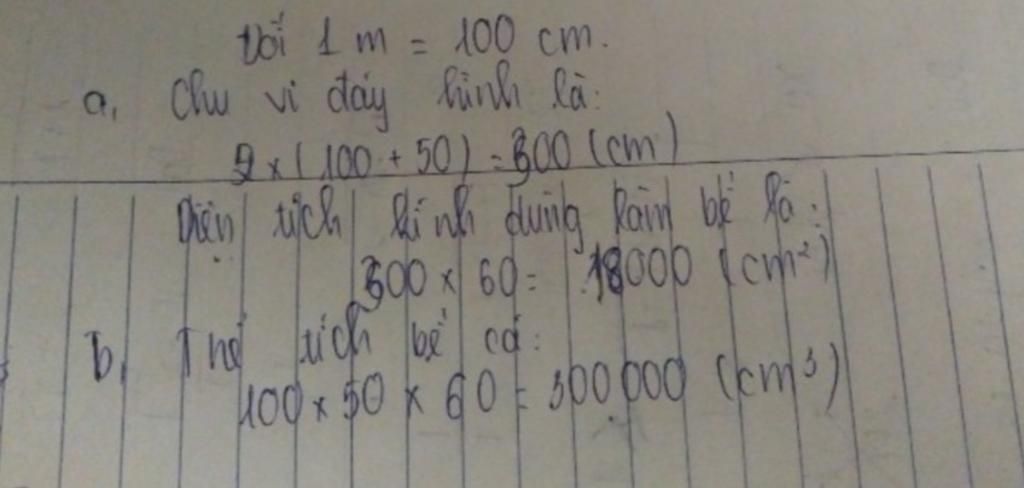 Với 1 m = 100 cm.
a, Chu vi đáy kính là:
2 x (100 + 50) = 300 (cm)
Diện tích kính dùng làm bể là:
300 x 60 = 18000 (cm²)
b, Thể tích bể cá:
100 x 50 x 60 = 300 000 (cm³)